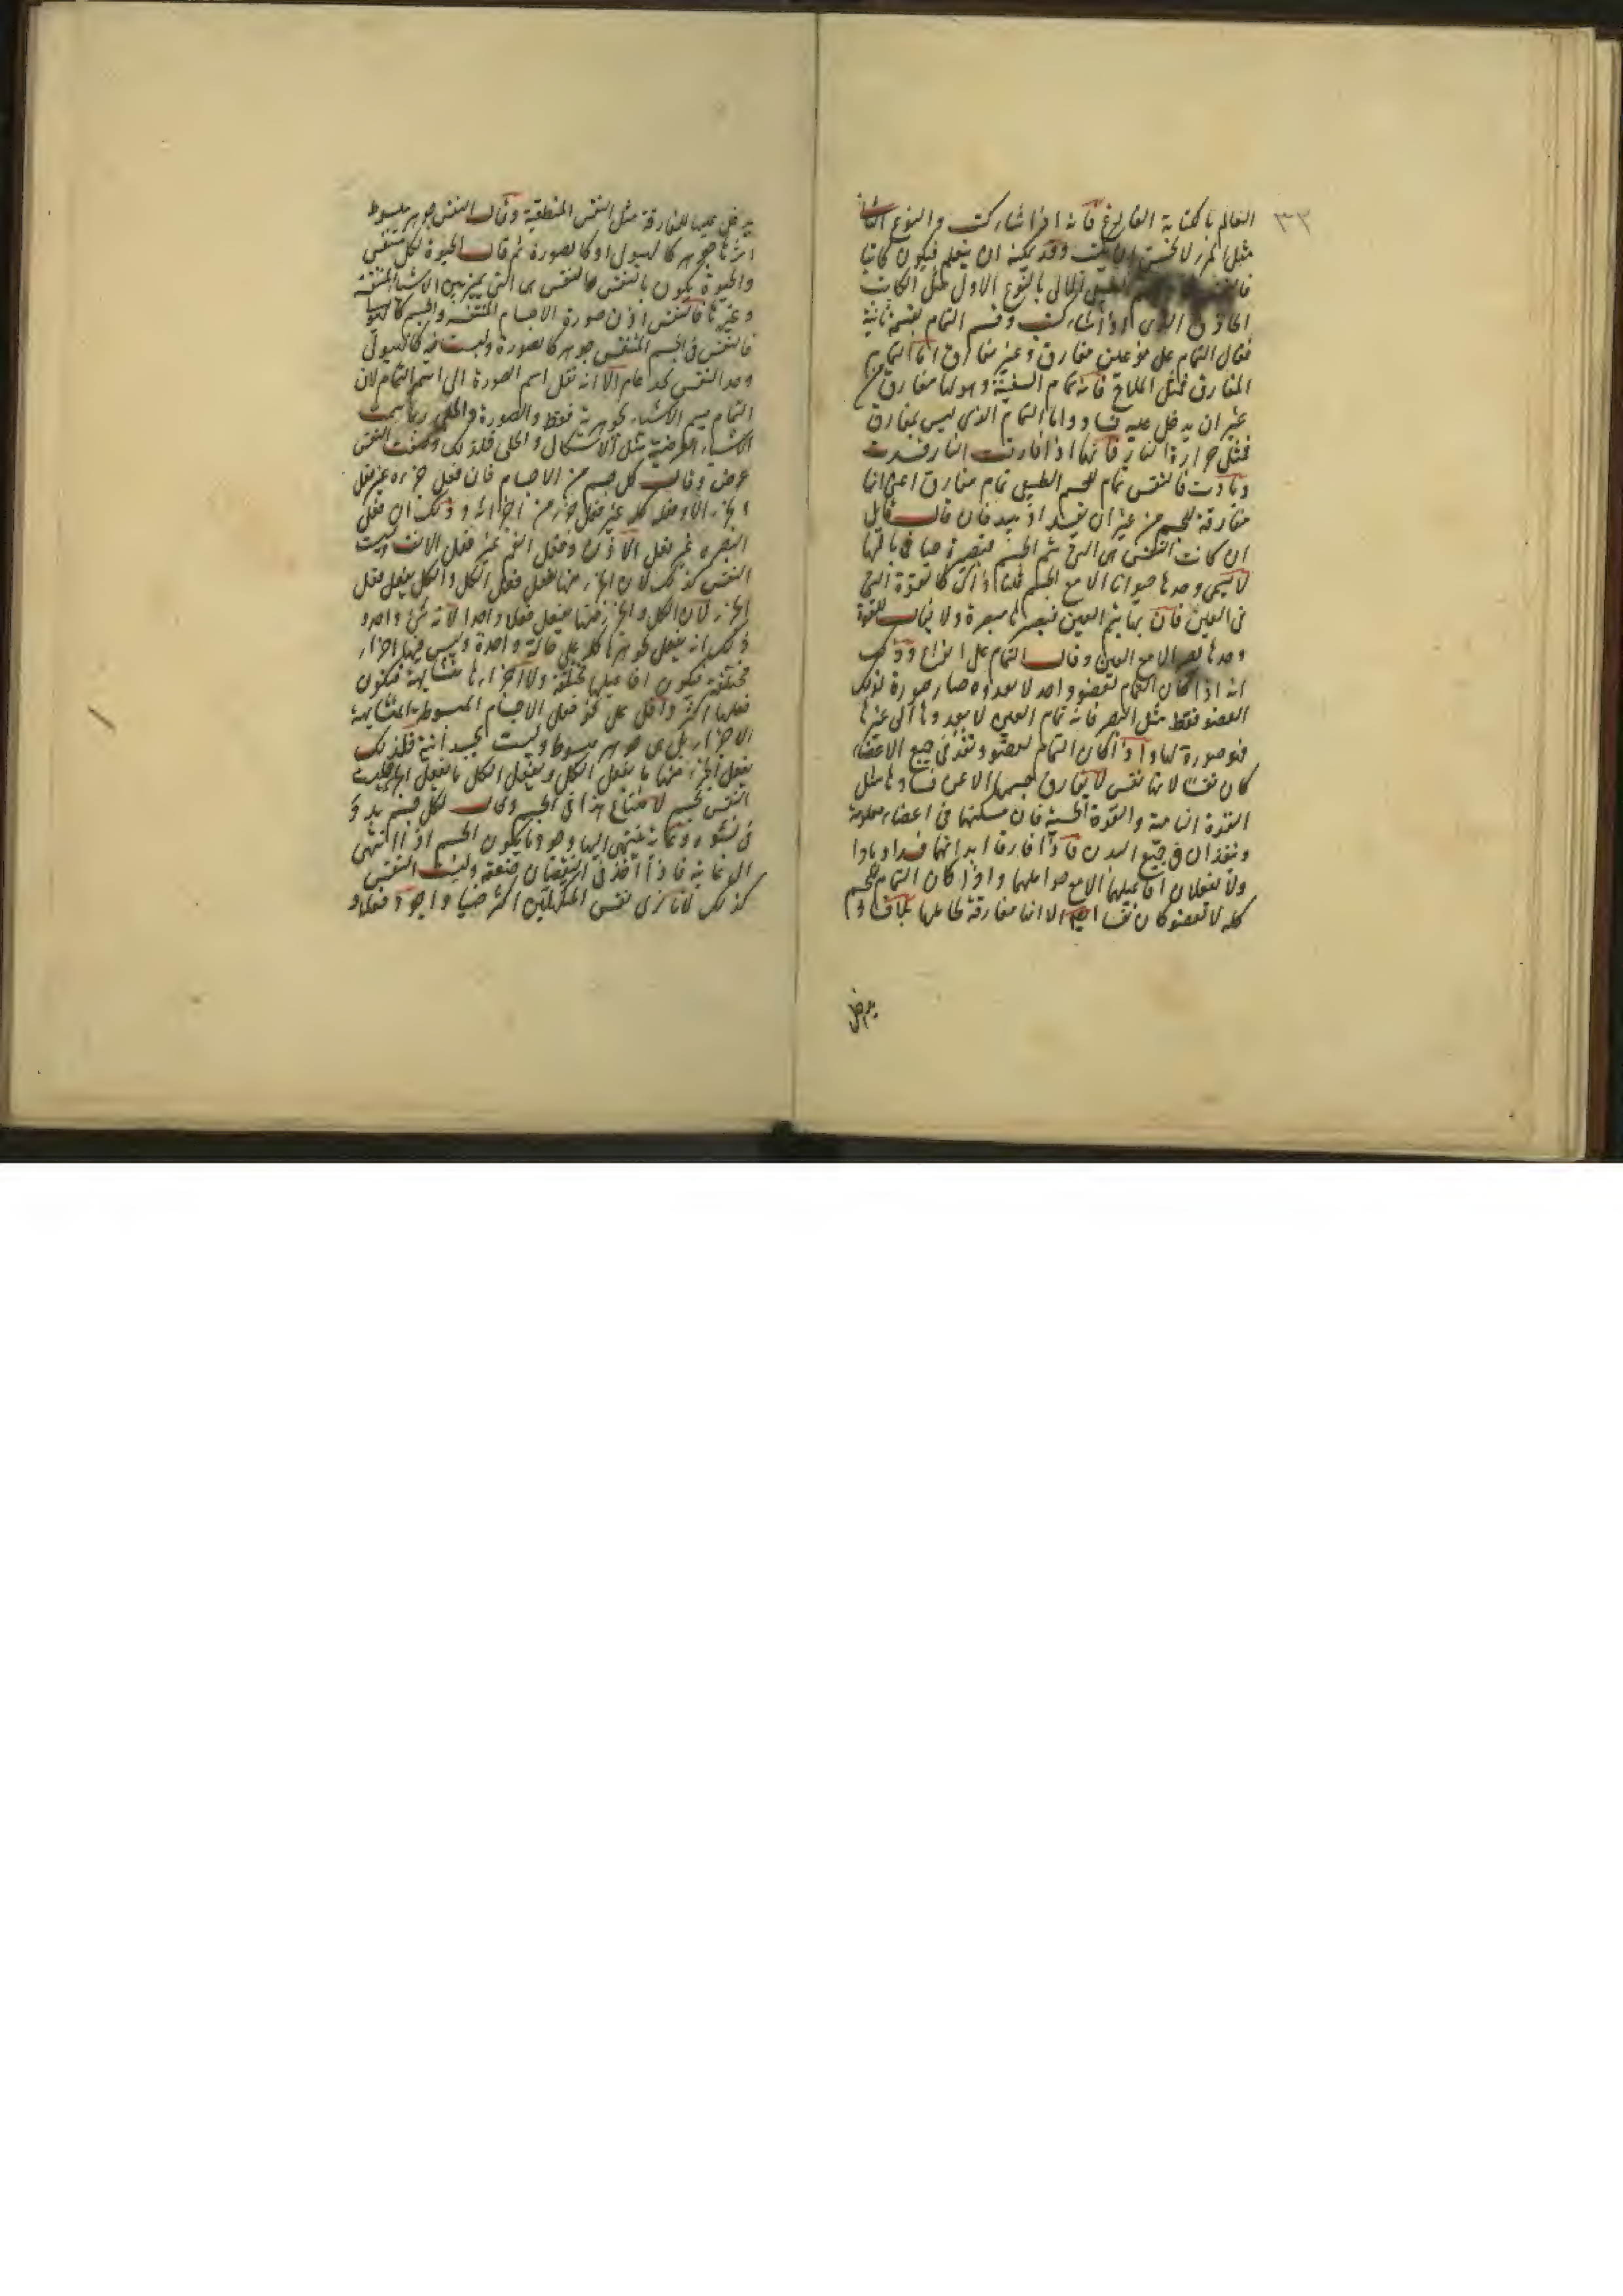 ٣٣
العالم بالكتابة الفارغ فانه اذا شاء كتب والنوع الثانى
مثل الذى لا يحسن ان يكتب وقد يمكنه ان يتعلم فيكون كاتبا
تمام بالنوع الاول مثل الكاتب
الحاذق الذى اذا شاء كتب وقسم التمام بقسمة ثانية
فقال التمام على نوعين مفارق وغير مفارق اما التمام
المفارق فمثل الملاح فانه تمام السفينة وهو لها مفارق من
غير ان يدخل عليه فساد واما التمام الذى ليس بمفارق
فمثل حرارة النار فانها اذا فارقت النار فسدت
وبادت فالنفس تمام للجسم الطبيعى تمام مفارق اعنى انها
مفارقة للجسم من غير ان تفسد او تبيد فان قال قائل
ان كانت النفس هى التى تتم الجسم فتصيره حيا فما بالها
لا تسمى وحدها حيوانا الا مع الجسم قلنا ذاك كالقوة التى
فى العين فان بها تتم العين فتصير باصرة ولا يقال للقوة
وحدها بصر الا مع العين وقال التمام على انواع وذلك
انه اذا كان التمام لعضو واحد لا يعدوه صار صورة لذلك
العضو فقط مثل البصر فانه تمام العين لا يعدوها الى غيرها
فهو صورة لها واذا كان التمام لعضو ونفذ فى جميع الاعضاء
كان نفسا لانها نفس لا يفارق جسمها الا عن فسادها مثل
القوة النامية والقوة الحسية فان مسكنهما فى اعضاء معلومة
وينفذان فى جميع البدن فاذا فارقا ابدانهما فسدا وبادا
ولا يفعلان افاعيلهما الا مع حواملهما واذا كان التمام للجسم
كله لا لعضو كان نفسا ايضا الا انها مفارقة لحاملها بلا فساد
يدخل
يدخل عليها للمفارقة مثل النفس المنطقية وقال النفس جوهر مبسوط
جوهر كالهيولى او كالصورة ثم قال الحيوة لكل متنفس
والحيوة تكون بالنفس فالنفس هى التى تميز بين الاشياء المتنفسة
وغيرها فالنفس اذن صورة الاجسام المتنفسة والجسم كالهيولى لها
فالنفس فى الجسم المتنفس جوهر كالصورة وليست فيه كالهيولى
وحد النفس بحد عام الا انه نقل اسم الصورة الى اسم التمام لان
التمام يسم الاشياء الجوهرية فقط والصورة والحلى ربما سمت
الاشياء العرضية مثل الاشكال والحلى فلذلك وصفت النفس
عرض وقال كل جسم من الاجسام فان فعل جزءه غير فعل
الجزء الآخر وفعل كله غير فعل جزء من اجزائه وذلك ان فعل
البصر غير فعل الاذن وفعل الفم غير فعل الانف وليست
النفس كذلك لان الجزء منها يفعل فعل الكل والكل يفعل فعل
الجزء لان الكل والجزء منها يفعل فعلا واحدا لانه شئ واحد و
ذلك انه يفعل بجوهرها كله على حالة واحدة وليس فيها اجزاء
مختلفة فيكون افاعيلها مختلفة ولا اجزاءها متشابهة فيكون
فعلها اكثر واقل على نحو فعل الاجسام المبسوطة المتشابهة
الاجزاء بل هى جوهر مبسوط وليست بجسد البتة فلذلك
يفعل الجزء منها ما يفعل الكل ويفعل الكل ما يفعل الجزء فليست
النفس بجسم لامتناع هذا فى الجسم وقال لكل جسم بدو
فى نشوه وغاية ينتهى اليها وجوده ما يكون الجسم اذا انتهى
الى غايته فاذا اخذ فى النقصان ضعف وليست النفس
كذلك لانا نرى نفس المكتهلين اكثر ضياء واجود فعلا و